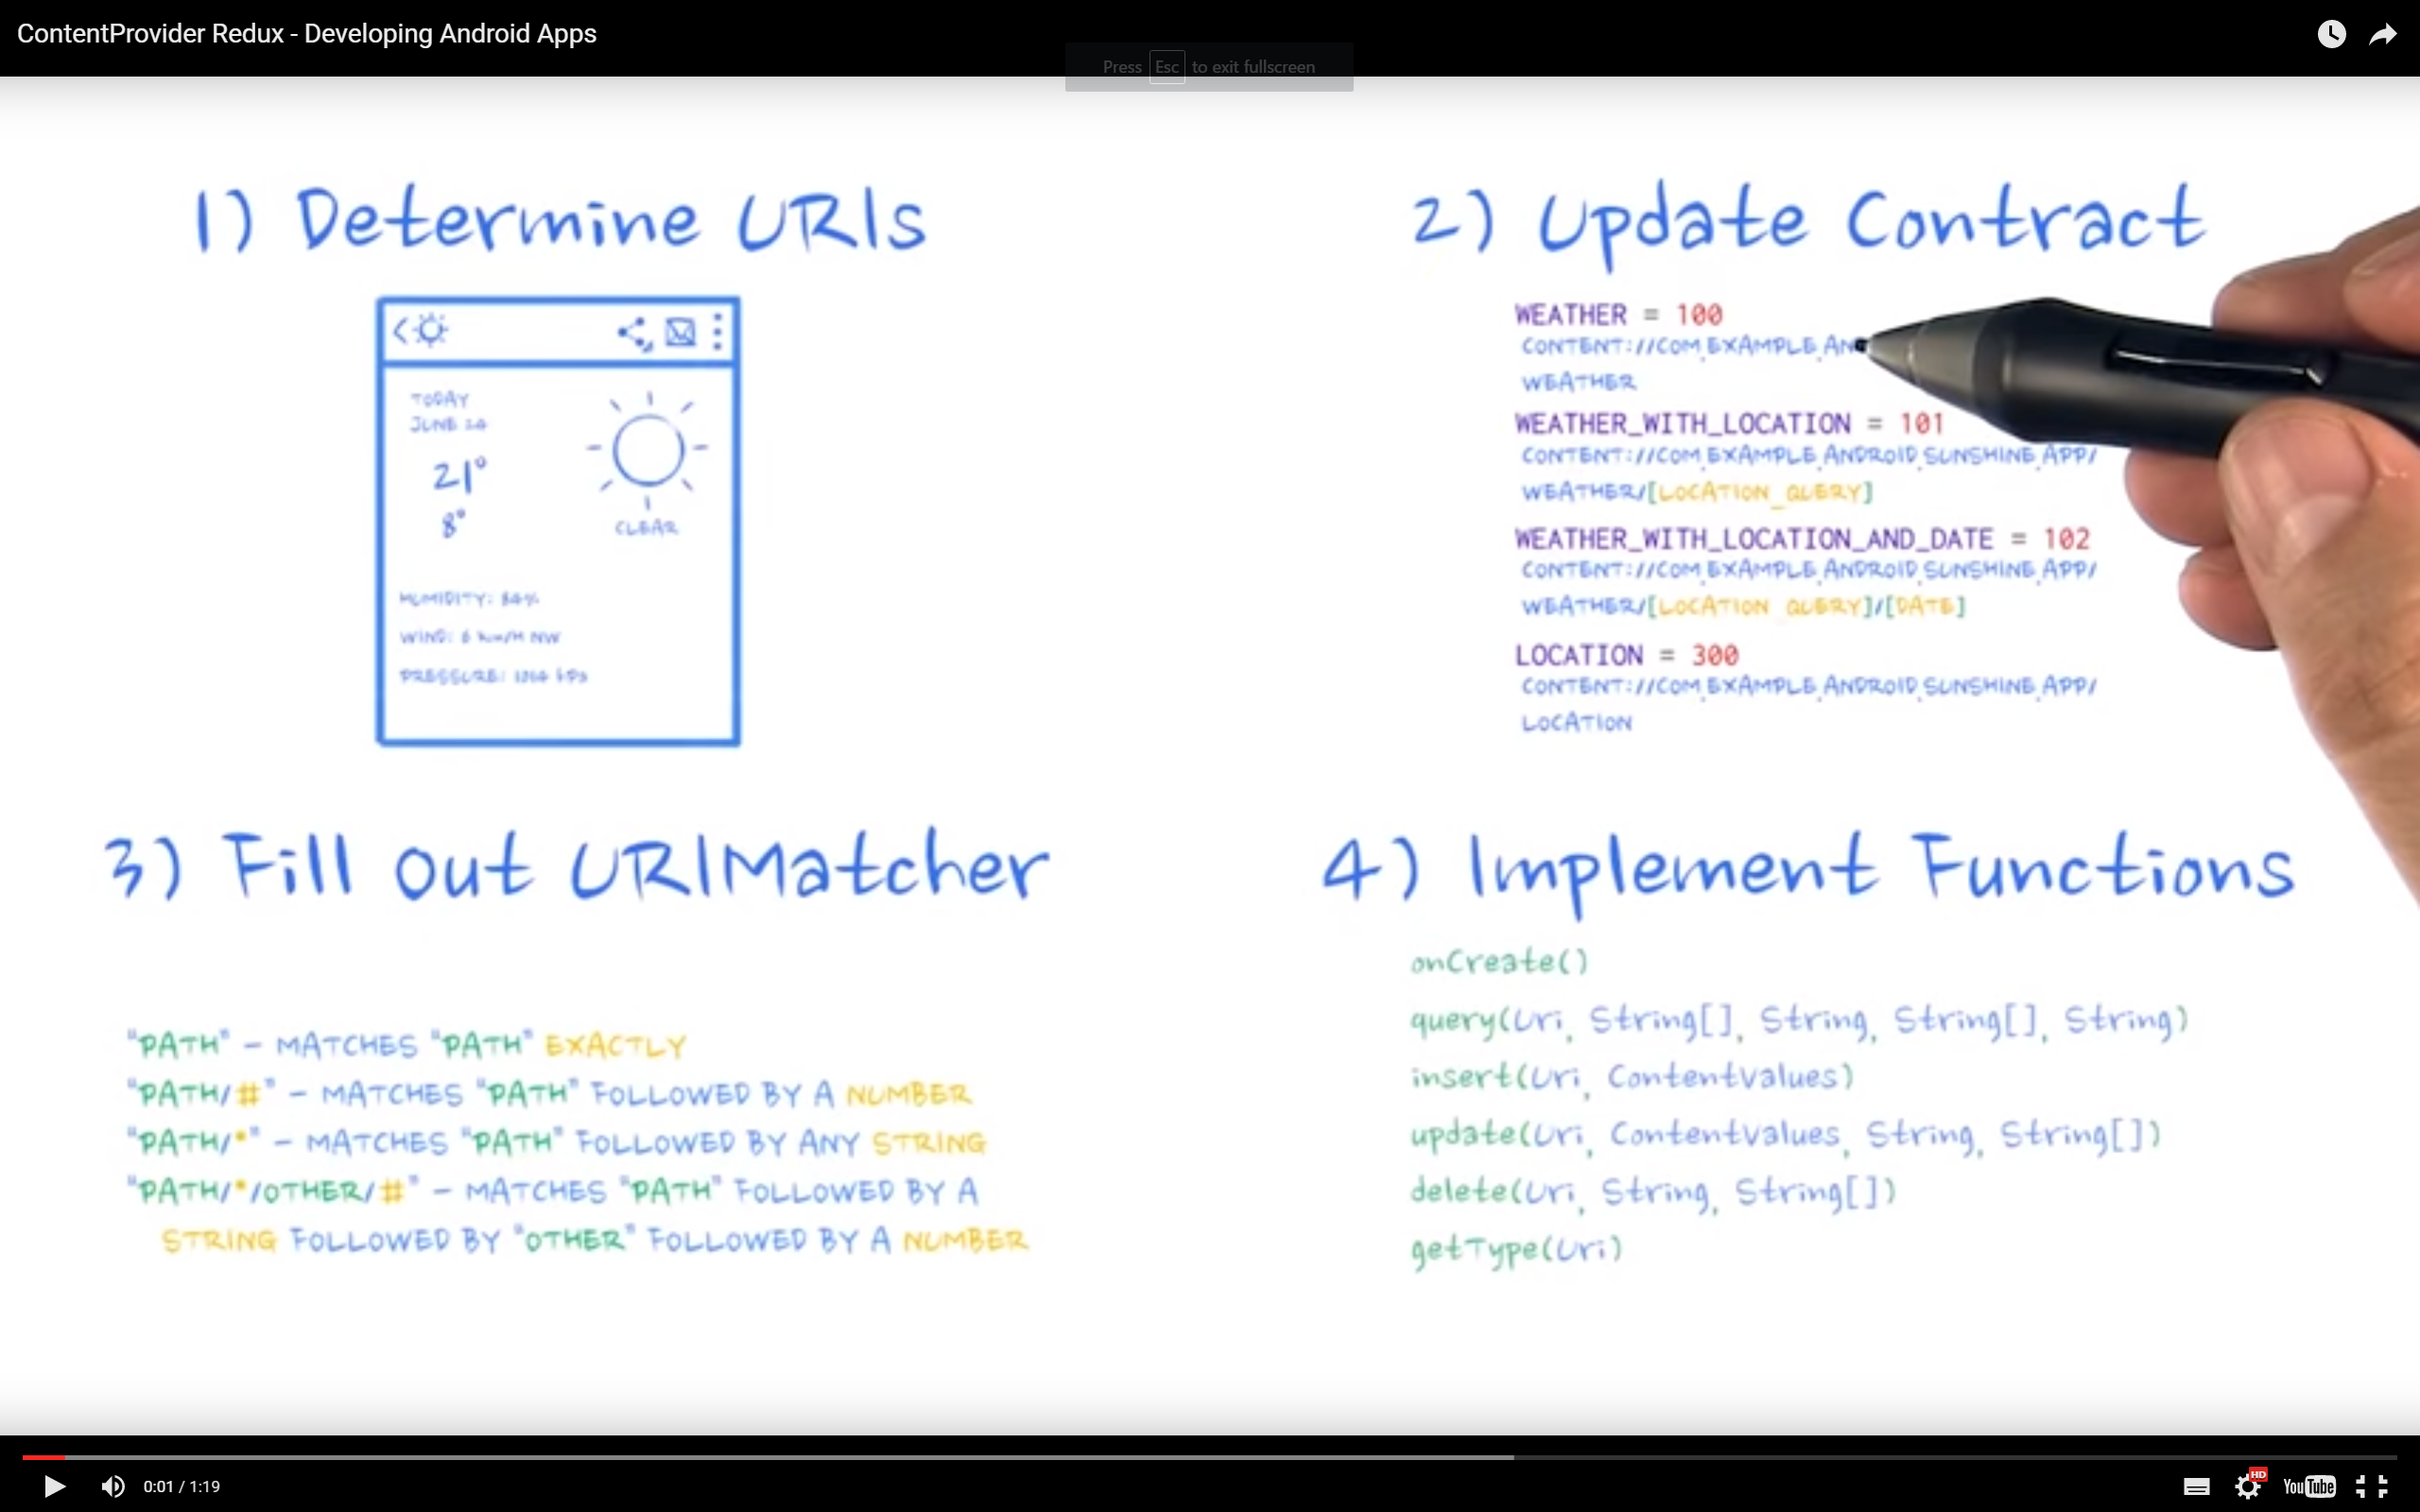 ContentProvider Redux - Developing Android Apps
Press Esc to exit fullscreen
1) Determine URIs
TODAY
JUNE 24
21°
8°
CLEAR
HUMIDITY: 84%
WIND: 6 km/H NW
PRESSURE: 1014 kPa
2) Update Contract
WEATHER = 100
CONTENT://COM.EXAMPLE.AN
WEATHER
WEATHER_WITH_LOCATION = 101
CONTENT://COM.EXAMPLE.ANDROID.SUNSHINE.APP/
WEATHER/[LOCATION_QUERY]
WEATHER_WITH_LOCATION_AND_DATE = 102
CONTENT://COM.EXAMPLE.ANDROID.SUNSHINE.APP/
WEATHER/[LOCATION_QUERY]/[DATE]
LOCATION = 300
CONTENT://COM.EXAMPLE.ANDROID.SUNSHINE.APP/
LOCATION
3) Fill out URIMatcher
"PATH" – MATCHES "PATH" EXACTLY
"PATH/#" – MATCHES "PATH" FOLLOWED BY A NUMBER
"PATH/*" – MATCHES "PATH" FOLLOWED BY ANY STRING
"PATH/*/OTHER/#" – MATCHES "PATH" FOLLOWED BY A
STRING FOLLOWED BY "OTHER" FOLLOWED BY A NUMBER
4) Implement Functions
onCreate()
query(Uri, String[], String, String[], String)
insert(Uri, ContentValues)
update(Uri, ContentValues, String, String[])
delete(Uri, String, String[])
getType(Uri)
0:01 / 1:19
HD
YouTube